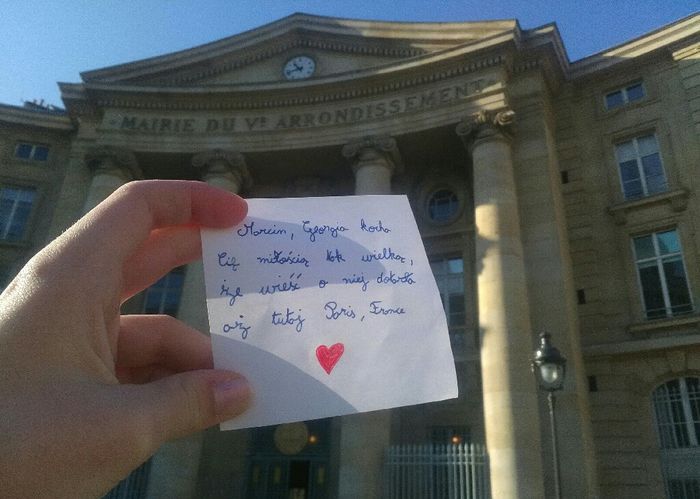 MAIRIE DU Vᴱ ARRONDISSEMENT
Marcin, Georgia kocha
Cię miłością tak wielką,
że wieść o niej dotarła
aż tutaj Paris, France